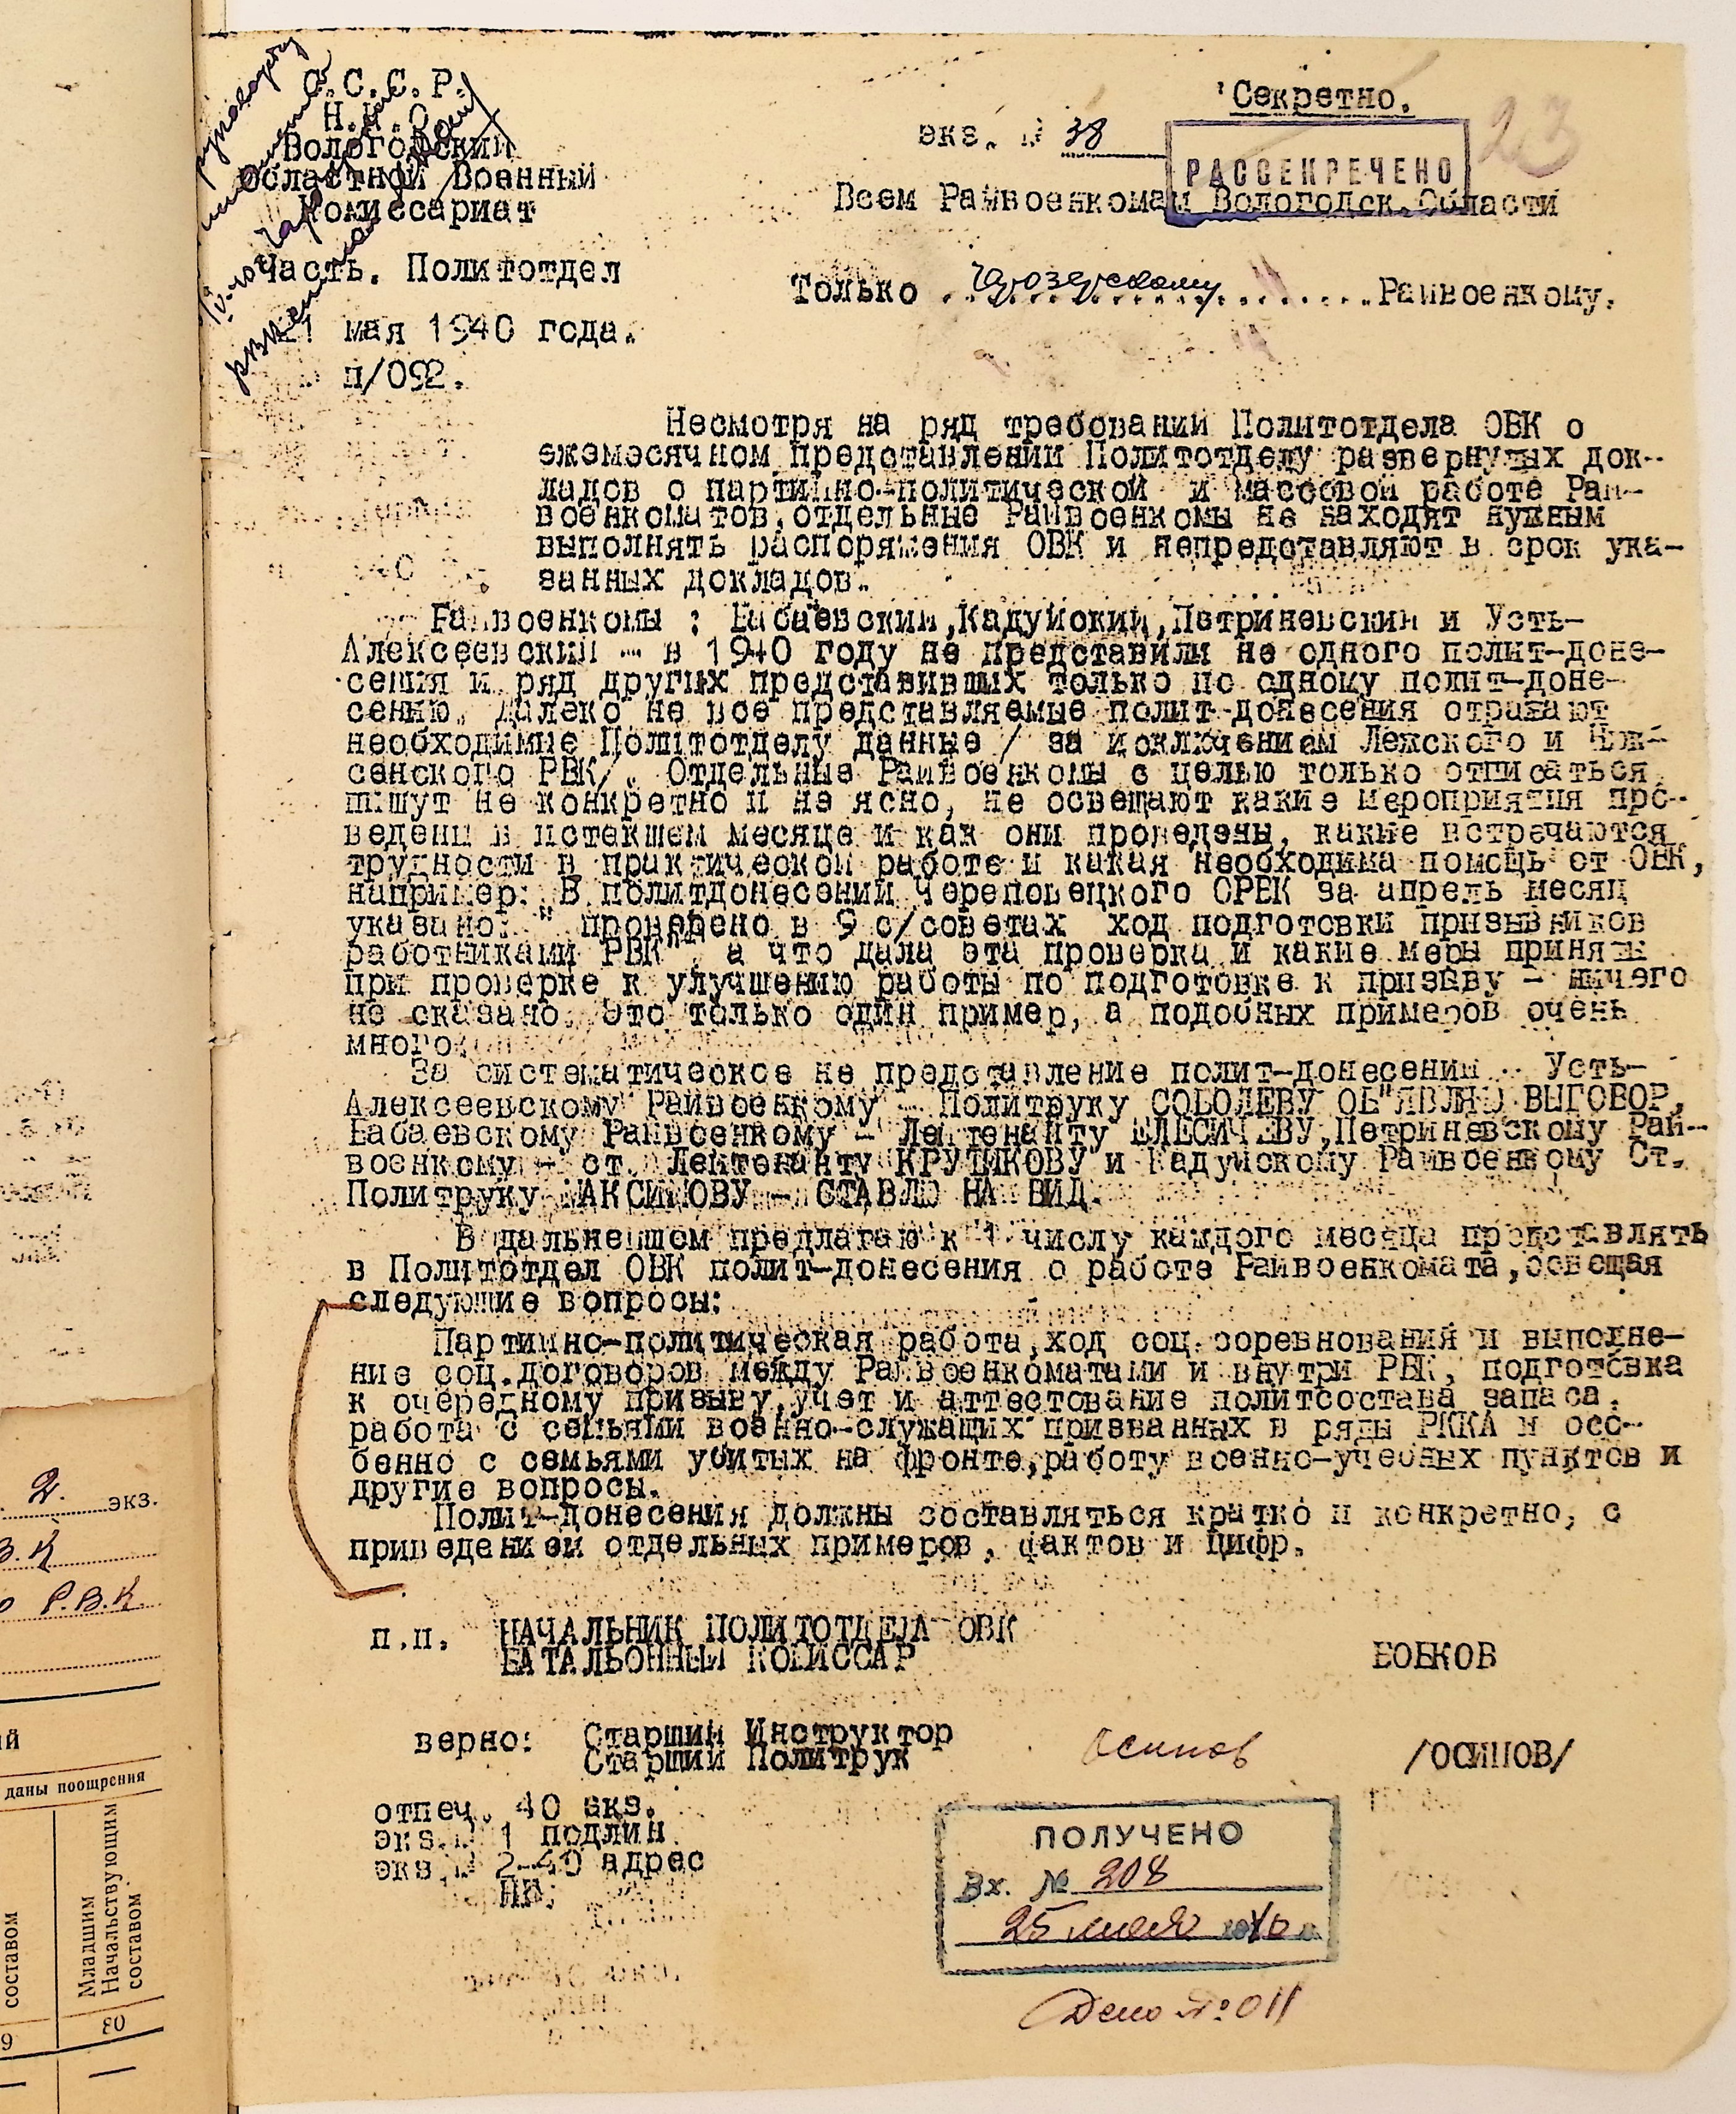 С.С.С.Р.
Н.К.О.
Вологодский
Областной Военный
Комиссариат
Часть. Политотдел
мая 1940 года.
п/092.
Секретно.
экз. № 38
23
РАССЕКРЕЧЕНО
Всем Райвоенкомам Вологодск.Области
Только Чарозерскому Райвоенкому.
Несмотря на ряд требований Политотдела ОВК о
ежемесячном представлении Политотделу развернутых док-
ладов о партийно-политической и массовой работе Рай-
военкоматов,отдельные Райвоенкомы не находят нужным
выполнять распоряжения ОВК и непредставляют в срок ука-
занных докладов.
Райвоенкомы : Бабаевский,Кадуйский,Петриневский и Усть-
Алексеевский - в 1940 году не представили не одного полит-доне-
сения и ряд других представивших только по одному полит-доне-
сению. Далеко не все представляемые полит-донесения отражают
необходимые Политотделу данные / за исключением Лежского и Нюк-
сенского РВК/. Отдельные Райвоенкомы с целью только отписаться
пишут не конкретно и не ясно, не освещают какие мероприятия про-
ведены в истекшем месяце и как они проведены, какие встречаются
трудности в практической работе и какая необходима помощь от ОВК,
например: В политдонесении Череповецкого ОРВК за апрель месяц
указано: " проверено в 9 с/советах ход подготовки призывников
работниками РВК" а что дала эта проверка и какие меры приняты
при проверке к улучшению работы по подготовке к призыву - ничего
не сказано. Это только один пример, а подобных примеров очень
много
За систематическое не представление полит-донесений - Усть-
Алексеевскому Райвоенкому - Политруку СОБОЛЕВУ ОБ"ЯВЛЯЮ ВЫГОВОР,
Бабаевскому Райвоенкому - Лейтенанту ЕЛЕСИЧЕВУ,Петриневскому Рай-
военкому - ст. Лейтенанту КРУТИКОВУ и Кадуйскому Райвоенкому Ст.
Политруку МАКСИМОВУ - СТАВЛЮ НА ВИД.
В дальнейшем предлагаю к 1 числу каждого месяца представлять
в Политотдел ОВК полит-донесения о работе Райвоенкомата,освещая
следующие вопросы:
Партийно-политическая работа,ход соц.соревнования и выполне-
ние соц.договоров между Райвоенкоматами и внутри РВК, подготовка
к очередному призыву,учет и аттестование политсостава запаса.
работа с семьями военно-служащих призванных в ряды РККА и осо-
бенно с семьями убитых на фронте,работу военно-учебных пунктов и
другие вопросы.
Полит-донесения должны составляться кратко и конкретно, с
приведением отдельных примеров, фактов и цифр.
п.п. НАЧАЛЬНИК ПОЛИТОТДЕЛА ОВК
БАТАЛЬОННЫЙ КОМИССАР БОБКОВ
верно: Старший Инструктор
Старший Политрук Осипов /ОСИПОВ/
отпеч. 40 экз.
экз.№ 1 подлин.
экз.№ 2-40 адрес
ПОЛУЧЕНО
Вх. № 208
25 мая 1940 г.
Дело № 011
2. экз.
В.К
о Р.В.К.
ий
даны поощрения
составом
Младшим
Начальствующим
составом
9
80